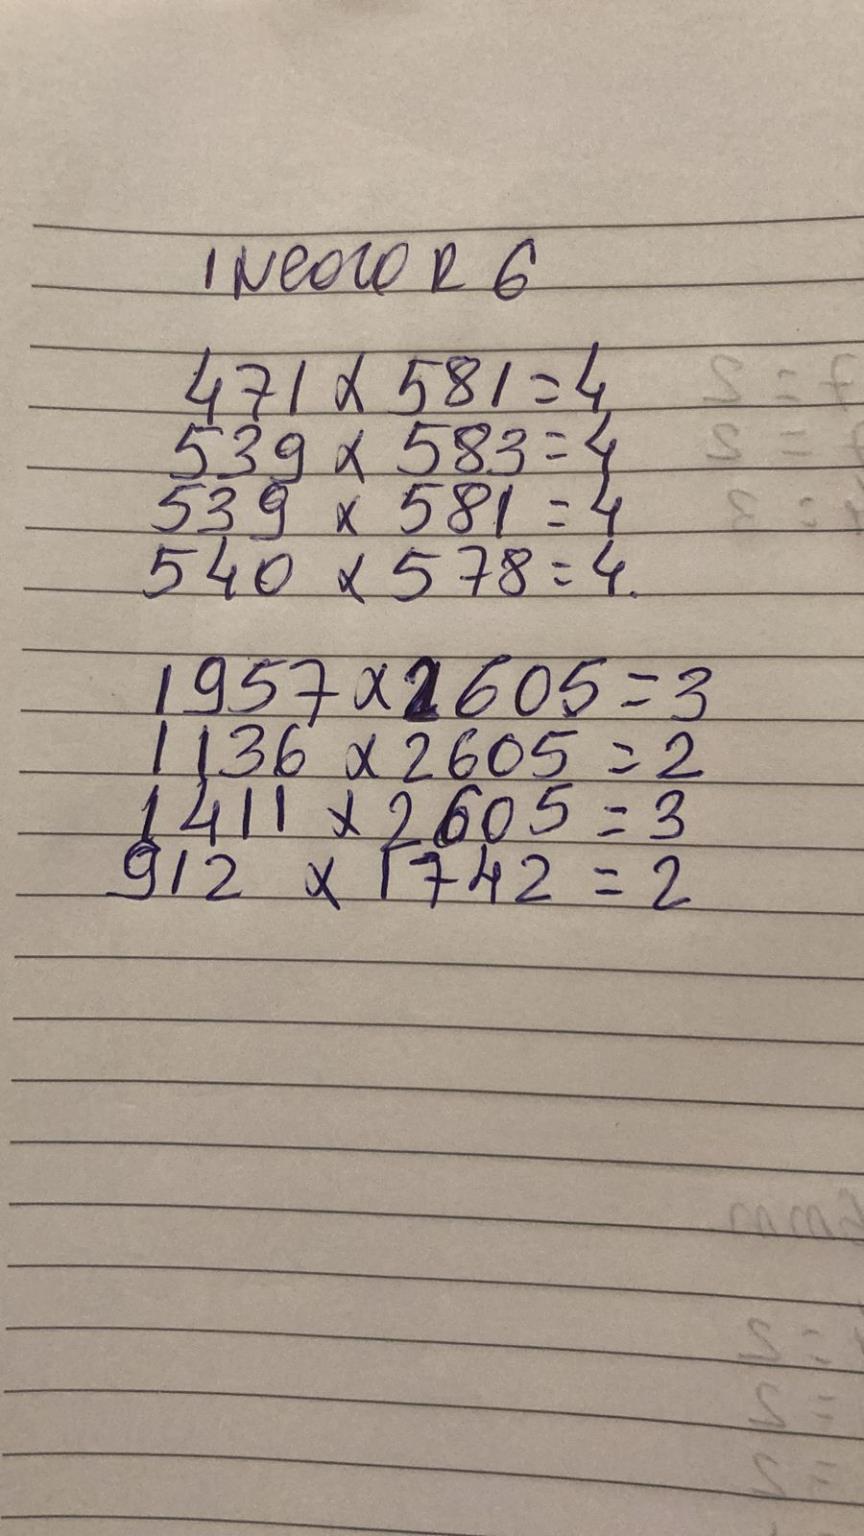 INCOLOR 6
471 x 581 = 4
539 x 583 = 4
539 x 581 = 4
540 x 578 = 4.
1957 x 2605 = 3
1136 x 2605 = 2
1411 x 2605 = 3
912 x 1742 = 2